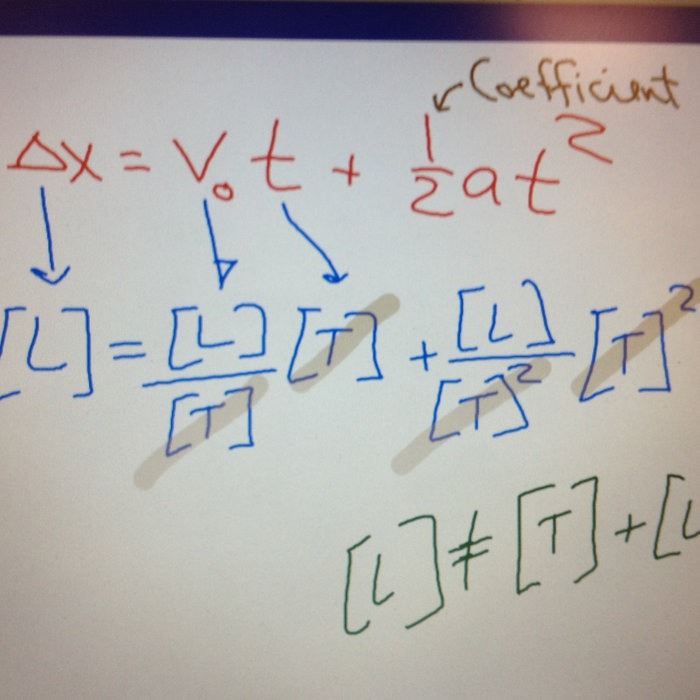 Coefficient
Δx = v₀t + 1/2 at²
[L] = [L]/[T] [T] + [L]/[T]² [T]²
[L] ≠ [T] + [L